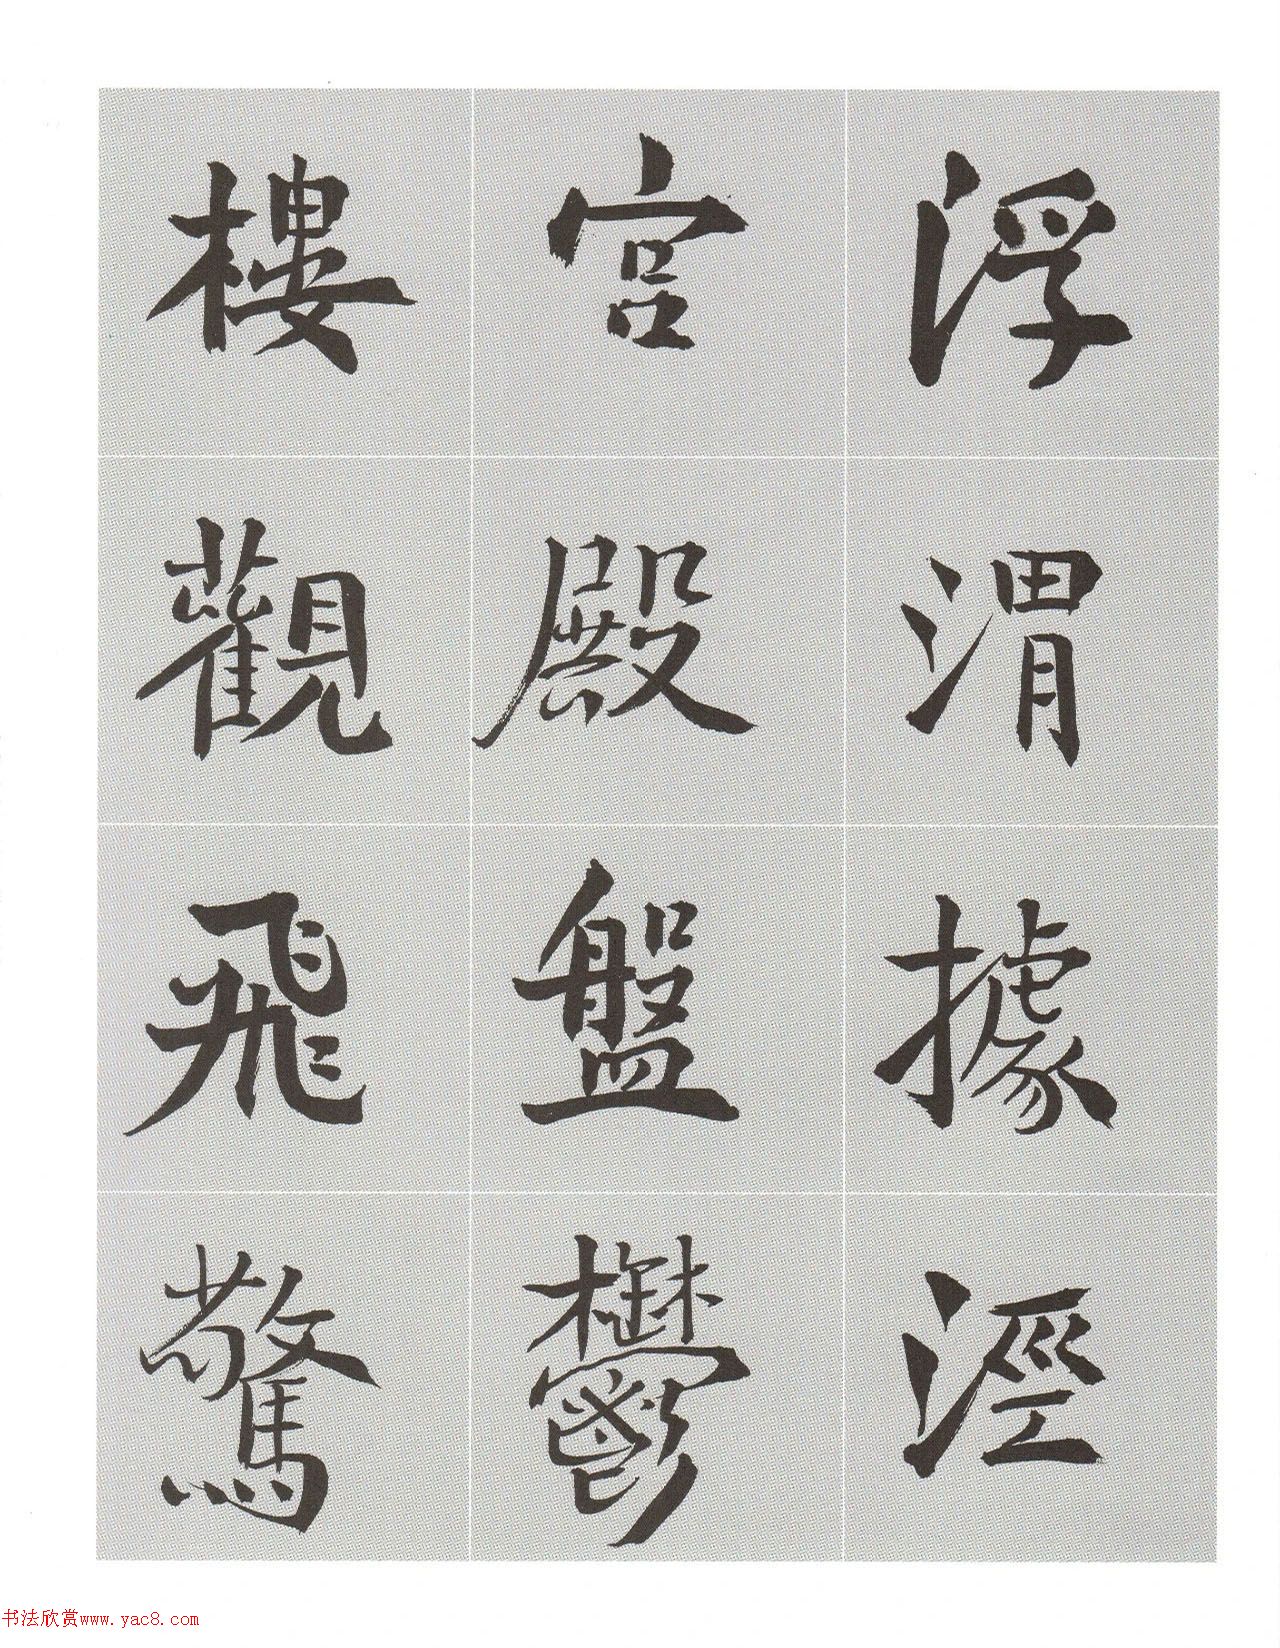 浮渭據涇
宮殿盤鬱
樓觀飛驚
书法欣赏www.yac8.com